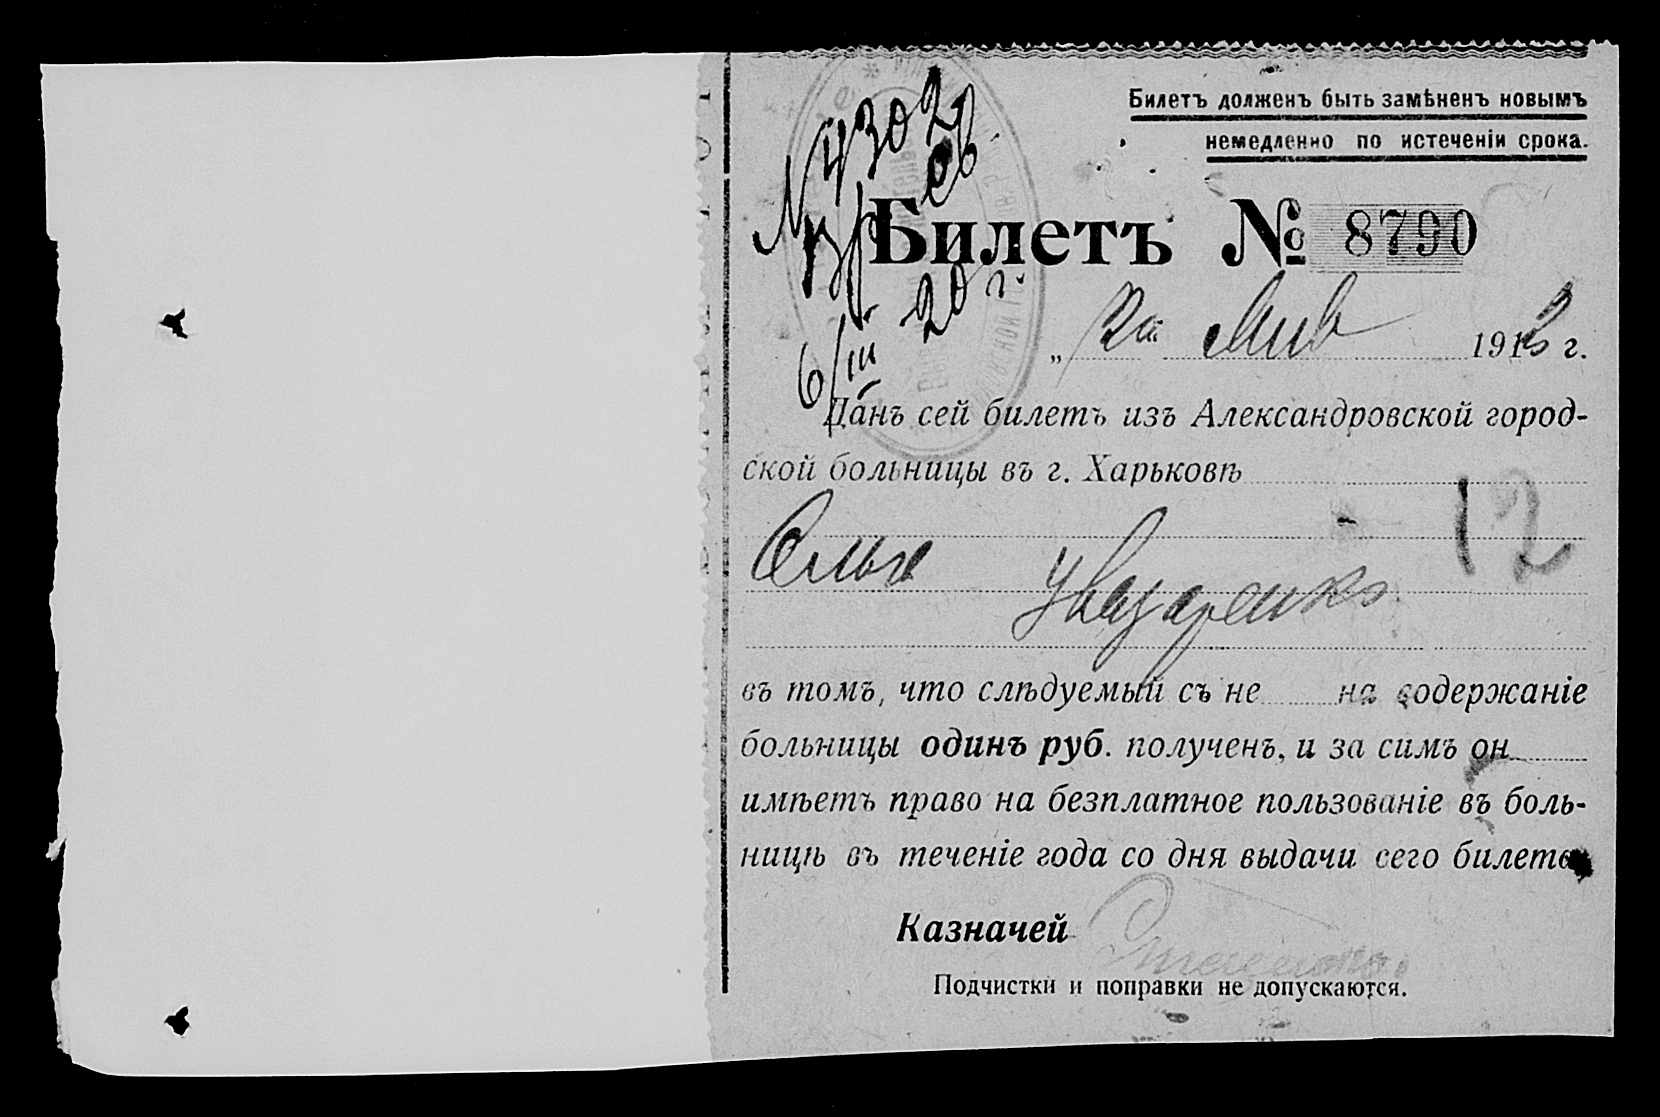 Билетъ долженъ быть замѣненъ новымъ
немедленно по истеченіи срока.
№ 4302
6/III 20 г.
Билетъ № 8790
191 г.
Данъ сей билетъ изъ Александровской город-
ской больницы въ г. Харьковѣ
12
Ольга
въ томъ, что слѣдуемый съ не на содержаніе
больницы одинъ руб. полученъ, и за симъ он
имѣетъ право на безплатное пользованіе въ боль-
ницѣ въ теченіе года со дня выдачи сего билета
Казначей
Подчистки и поправки не допускаются.